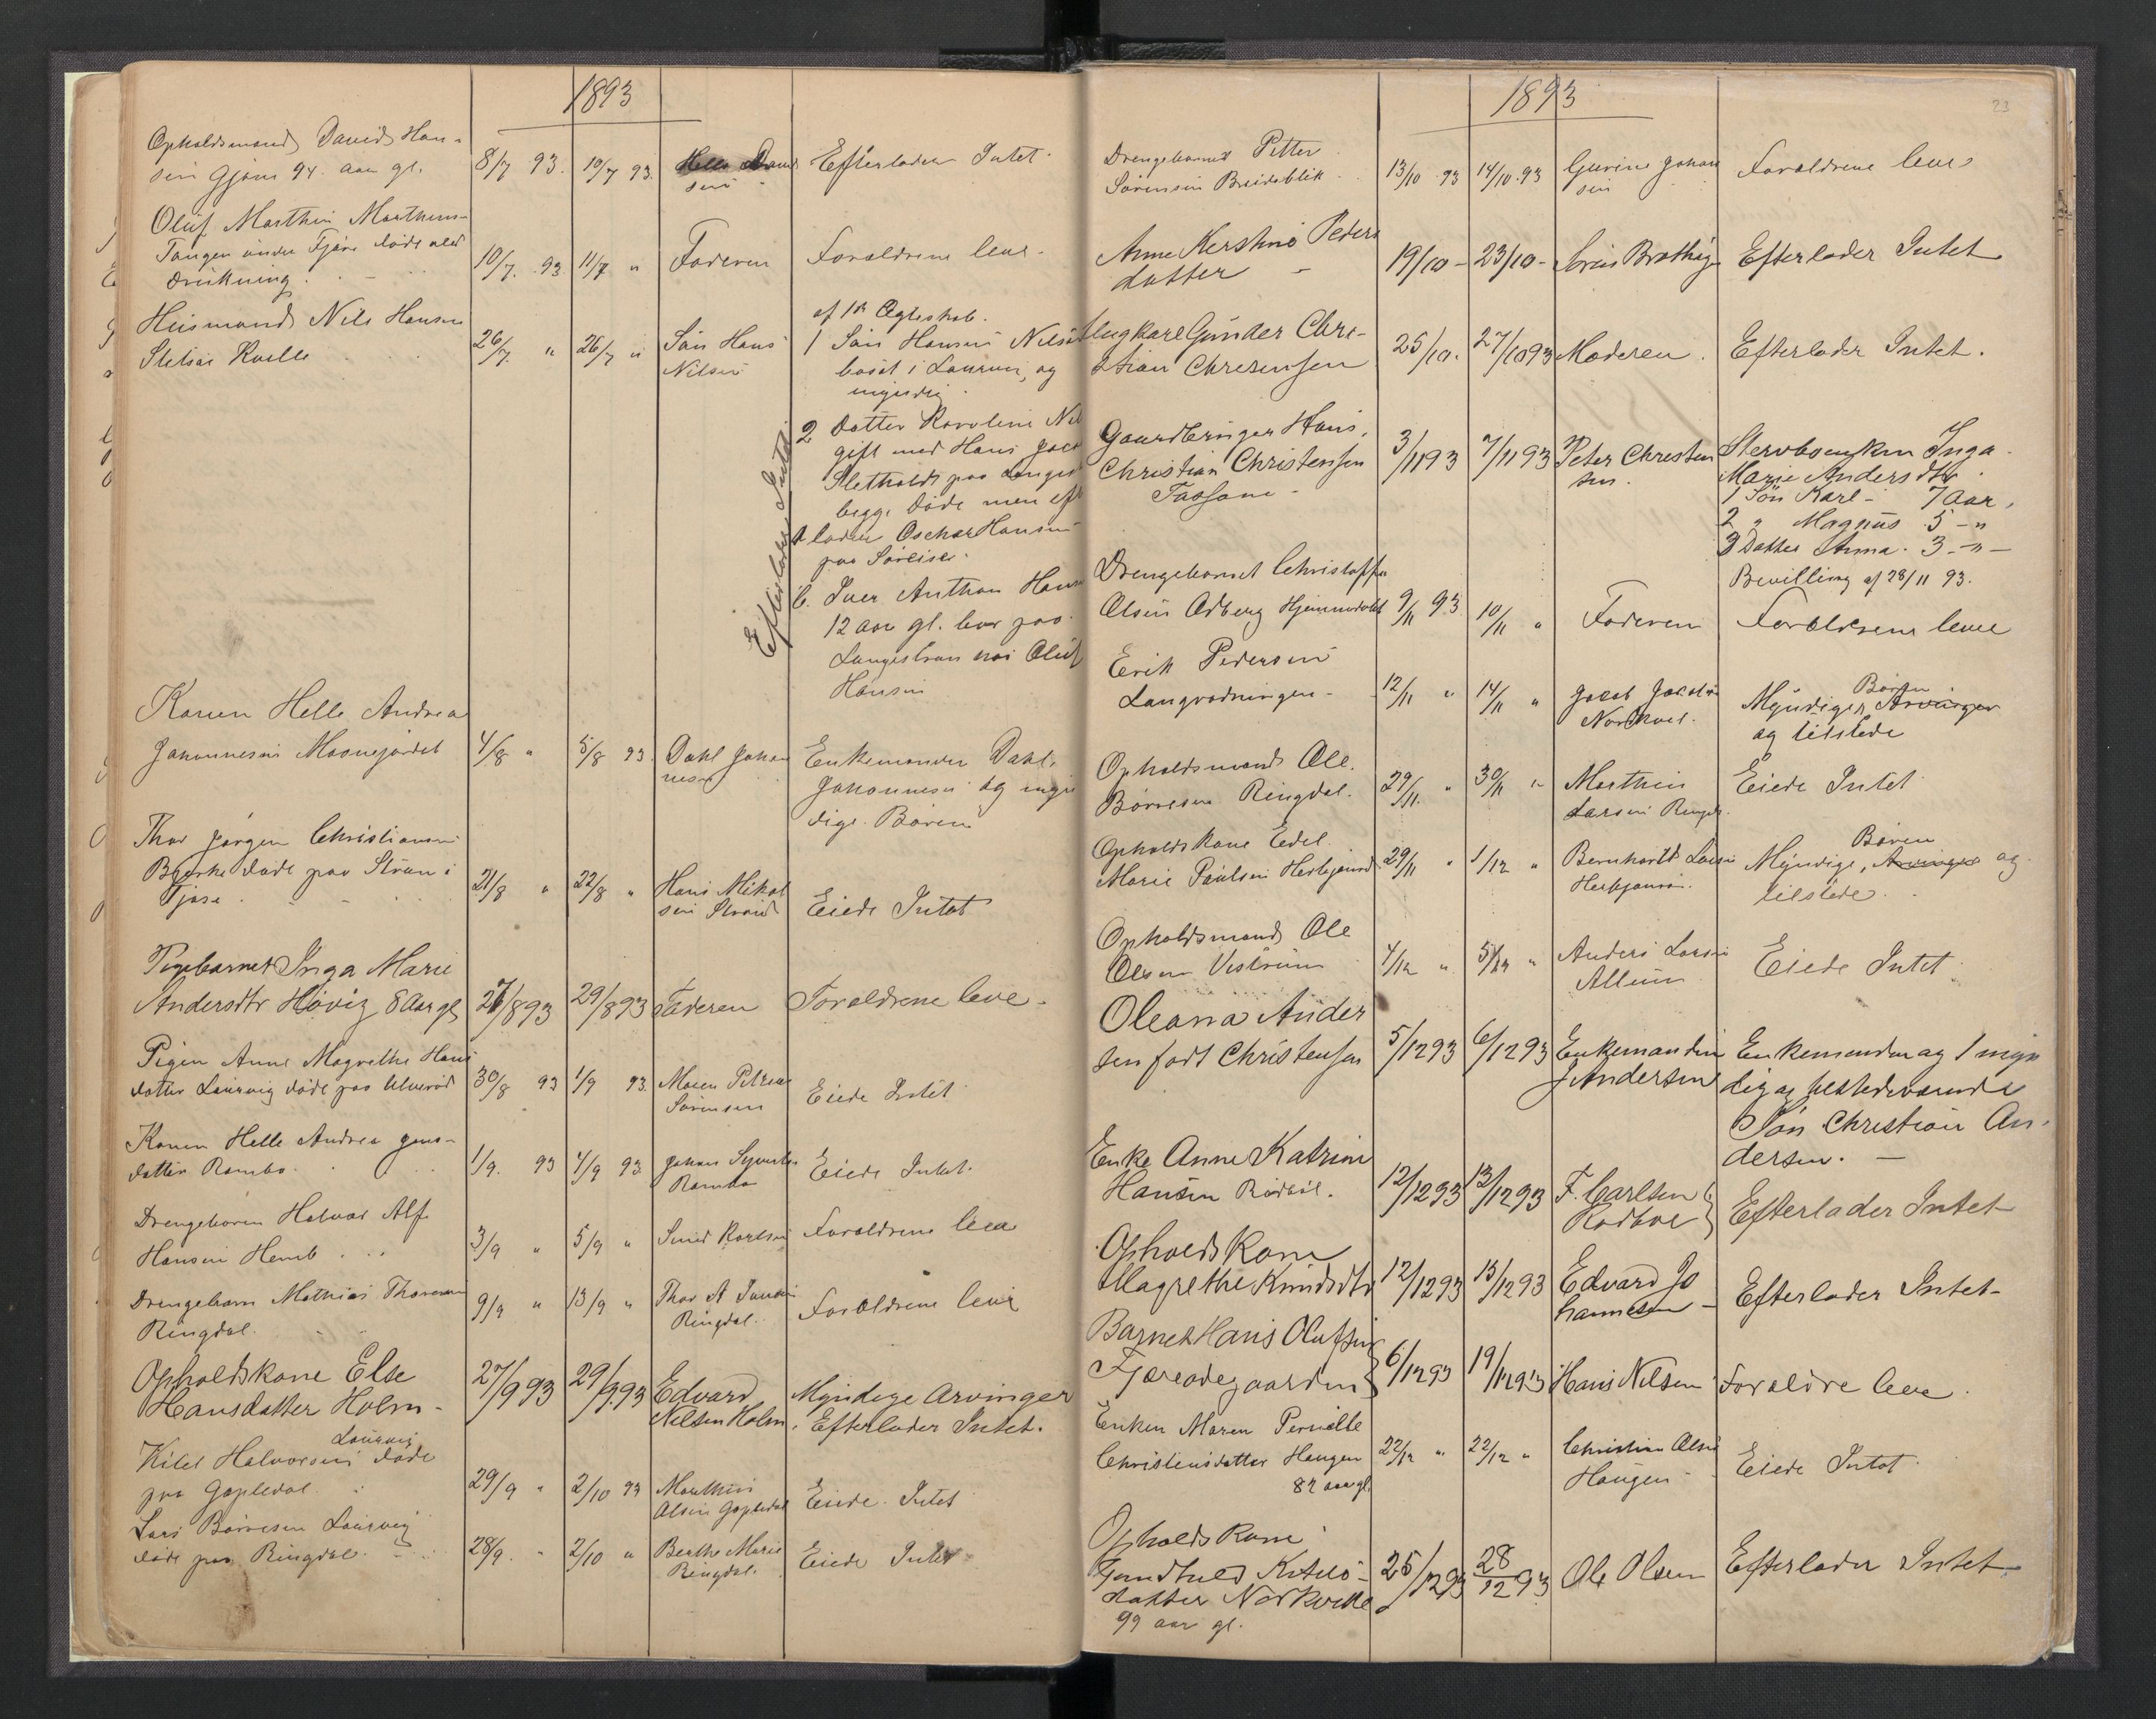 1893
Opholdsmand David Han-
sen Gjøne 94. aar gl. 8/7 93. 10/7 93. Helle David
sen Efterlader Intet.
Oluf Marthin Marthins-
Tangen under Tjøse døde ved
drukning. 10/7. 93. 11/7 " Faderen Forældrene lever.
Husmand Nils Hansen
26/7 " 26/7 " Søn Hans
Nilsen
af 1ste Ægteskab.
1 Søn Hansen Nilsen
bosat i Laurvig, og
myndig.
2 Datter Karoline Nil
gift med Hans Jaco
begge døde men eft
lader Oschar Hansen
paa
b. Iver Anthon Hansen
12 aar gl. bor paa
Langestrand hos Oluf
Hansen
Efterlader Intet
Konen Helle Andrea
Johannesen 4/8 " 5/8 93. Dahl Johan
nesen Enkemanden Dahl
Johannesen og myn
dige Børen
Thor Jørgen Christiansen
Bjerke døde paa Strøm i
Tjøse. 21/8 " 22/8 " Hans Mikal
sen Eiede Intet
Pigebarnet Inga Marie
Andersdtr Høvig 8 Aar gl 27/8 93 29/8 93 Faderen Forældrene leve.
Pigen Anne Magrethe Hans
datter Laurvig døde paa 30/8 93 1/9 93. Maren Petrine
Sørensen Eiede Intet
Konen Helle Andrea Jens-
datter Rambo. 1/9. 93 4/9 93. Johan
Rambo Eiede Intet.
Drengebarn Halvor Alf
Hansen Hemb 3/9 " 5/9 " Forældrene leve
Drengebarn Mathias Thoresen
Ringdal. 9/9 " 13/9 " Thor A
Ringdal. Forældrene leve
Opholdskone Else
Hansdatter Holm- 27/9 93 29/9 93 Edvard
Nilsen Holm. Myndige Arvinger
Efterlader Intet.
Laurvig
Kitel Halvorsen døde
paa Gopledal. 29/9 " 2/10 93 Marthin
Olsen Gopledal Eiede Intet
Lars Børresen Laurvig
døde paa Ringdal. 28/9. " 2/10 " Berthe Marie
Ringdal. Eiede Intet
1893
23
Drengebarnet Petter
Sørensen Breideblik 13/10 93 14/10 93 Gurine Johan
sen Forældrene leve
Anne Kerstine Peders
datter - 19/10 - 23/10 - Efterlader Intet
Ungkarl Gunder Chri-
stian Chresensen 25/10. 27/10 93 Moderen. Efterlader Intet.
Gaardbruger Hans
Christian Christensen
3/11 93 7/11 93 Peter Christen
sen. Stervboenken Inga
Marie Andersdtr.
1 Søn Karl - 7 Aar.
2 " Magnus 5 - "
3 Datter Anna. 3 - " -
Bevilling af 28/11 93.
Drengebarnet Christoffer
Olsen Odberg 9/11 93 10/11 " Faderen Forældrene leve
Erik Pedersen
Langrødningen - 12/11 " 14/11 " Jacob Jacobsen
Børen
Myndige, Arvinger
og tilstede
Opholdsmand Ole
Børresen Ringdal. 29/11. " 30/11 " Marthin
Larsen Ringdal. Eiede Intet
Opholdskone Edel
Marie Paulsen 29/11 " 1/12 " Bernhardt Larsen
Børen
Myndige, Arvinger og
tilstede.
Opholdsmand Ole
Olsen Vestrum 4/12 " 5/12 " Anders Larsen
Allum Eiede Intet
Oleana Ander
sen født Christensen 5/12 93 6/12 93 Enkemanden
J Andersen Enkemanden og 1 myn
dig og tilstedeværende
Søn Christian An-
dersen. -
Enke Anne Katrine
Hansen Rødbøl. 12/12 93 13/12 93 F. Carlsen
Rødbøl } Efterlader Intet
Opholdskone
Magrethe Knudsdtr 12/12 93 15/12 93 Edvard Jo
hannesen - Efterlader Intet-
Barnet Hans Olufsen
Fjæreødegaarden } 6/12 93 19/12 93 Hans Nilsen Forældre leve.
Enken Maren Pernille
Christensdatter Haugen
82 aar gl. 22/12 " 22/12 " Christian Olsen
Haugen - Eiede Intet
Opholdskone
datter
99 aar gl. 25/12 93 28/12 93 Ole Olsen Efterlader Intet